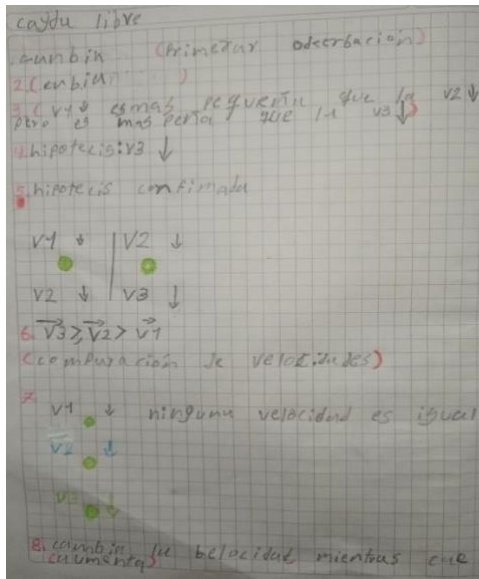 caydu libre
cambia (Primetar obcerbacion)
2.(cambian )
3.(v1↓ es mas pequeñu que la v2↓
pero es mas que la v3↓)
4.hipotecis: v3 ↓
5.hipotecis confimada
V1 ↓ | V2 ↓
V2 ↓ | V3 ↓
6. V3 ⩾ V2 > V1
(compuracion de velocidudes)
7.
V1 ↓ ningunu velocidad es igual
V2 ↓
V3 ↓
8. cambia la belocidad mientras cae
(aumenta)